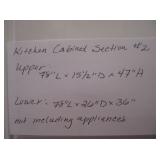 Kitchen Cabinet Section #2
Upper:
78"L x 15½"D x 47"H
Lower: 78"L x 26"D x 36"
not including appliances